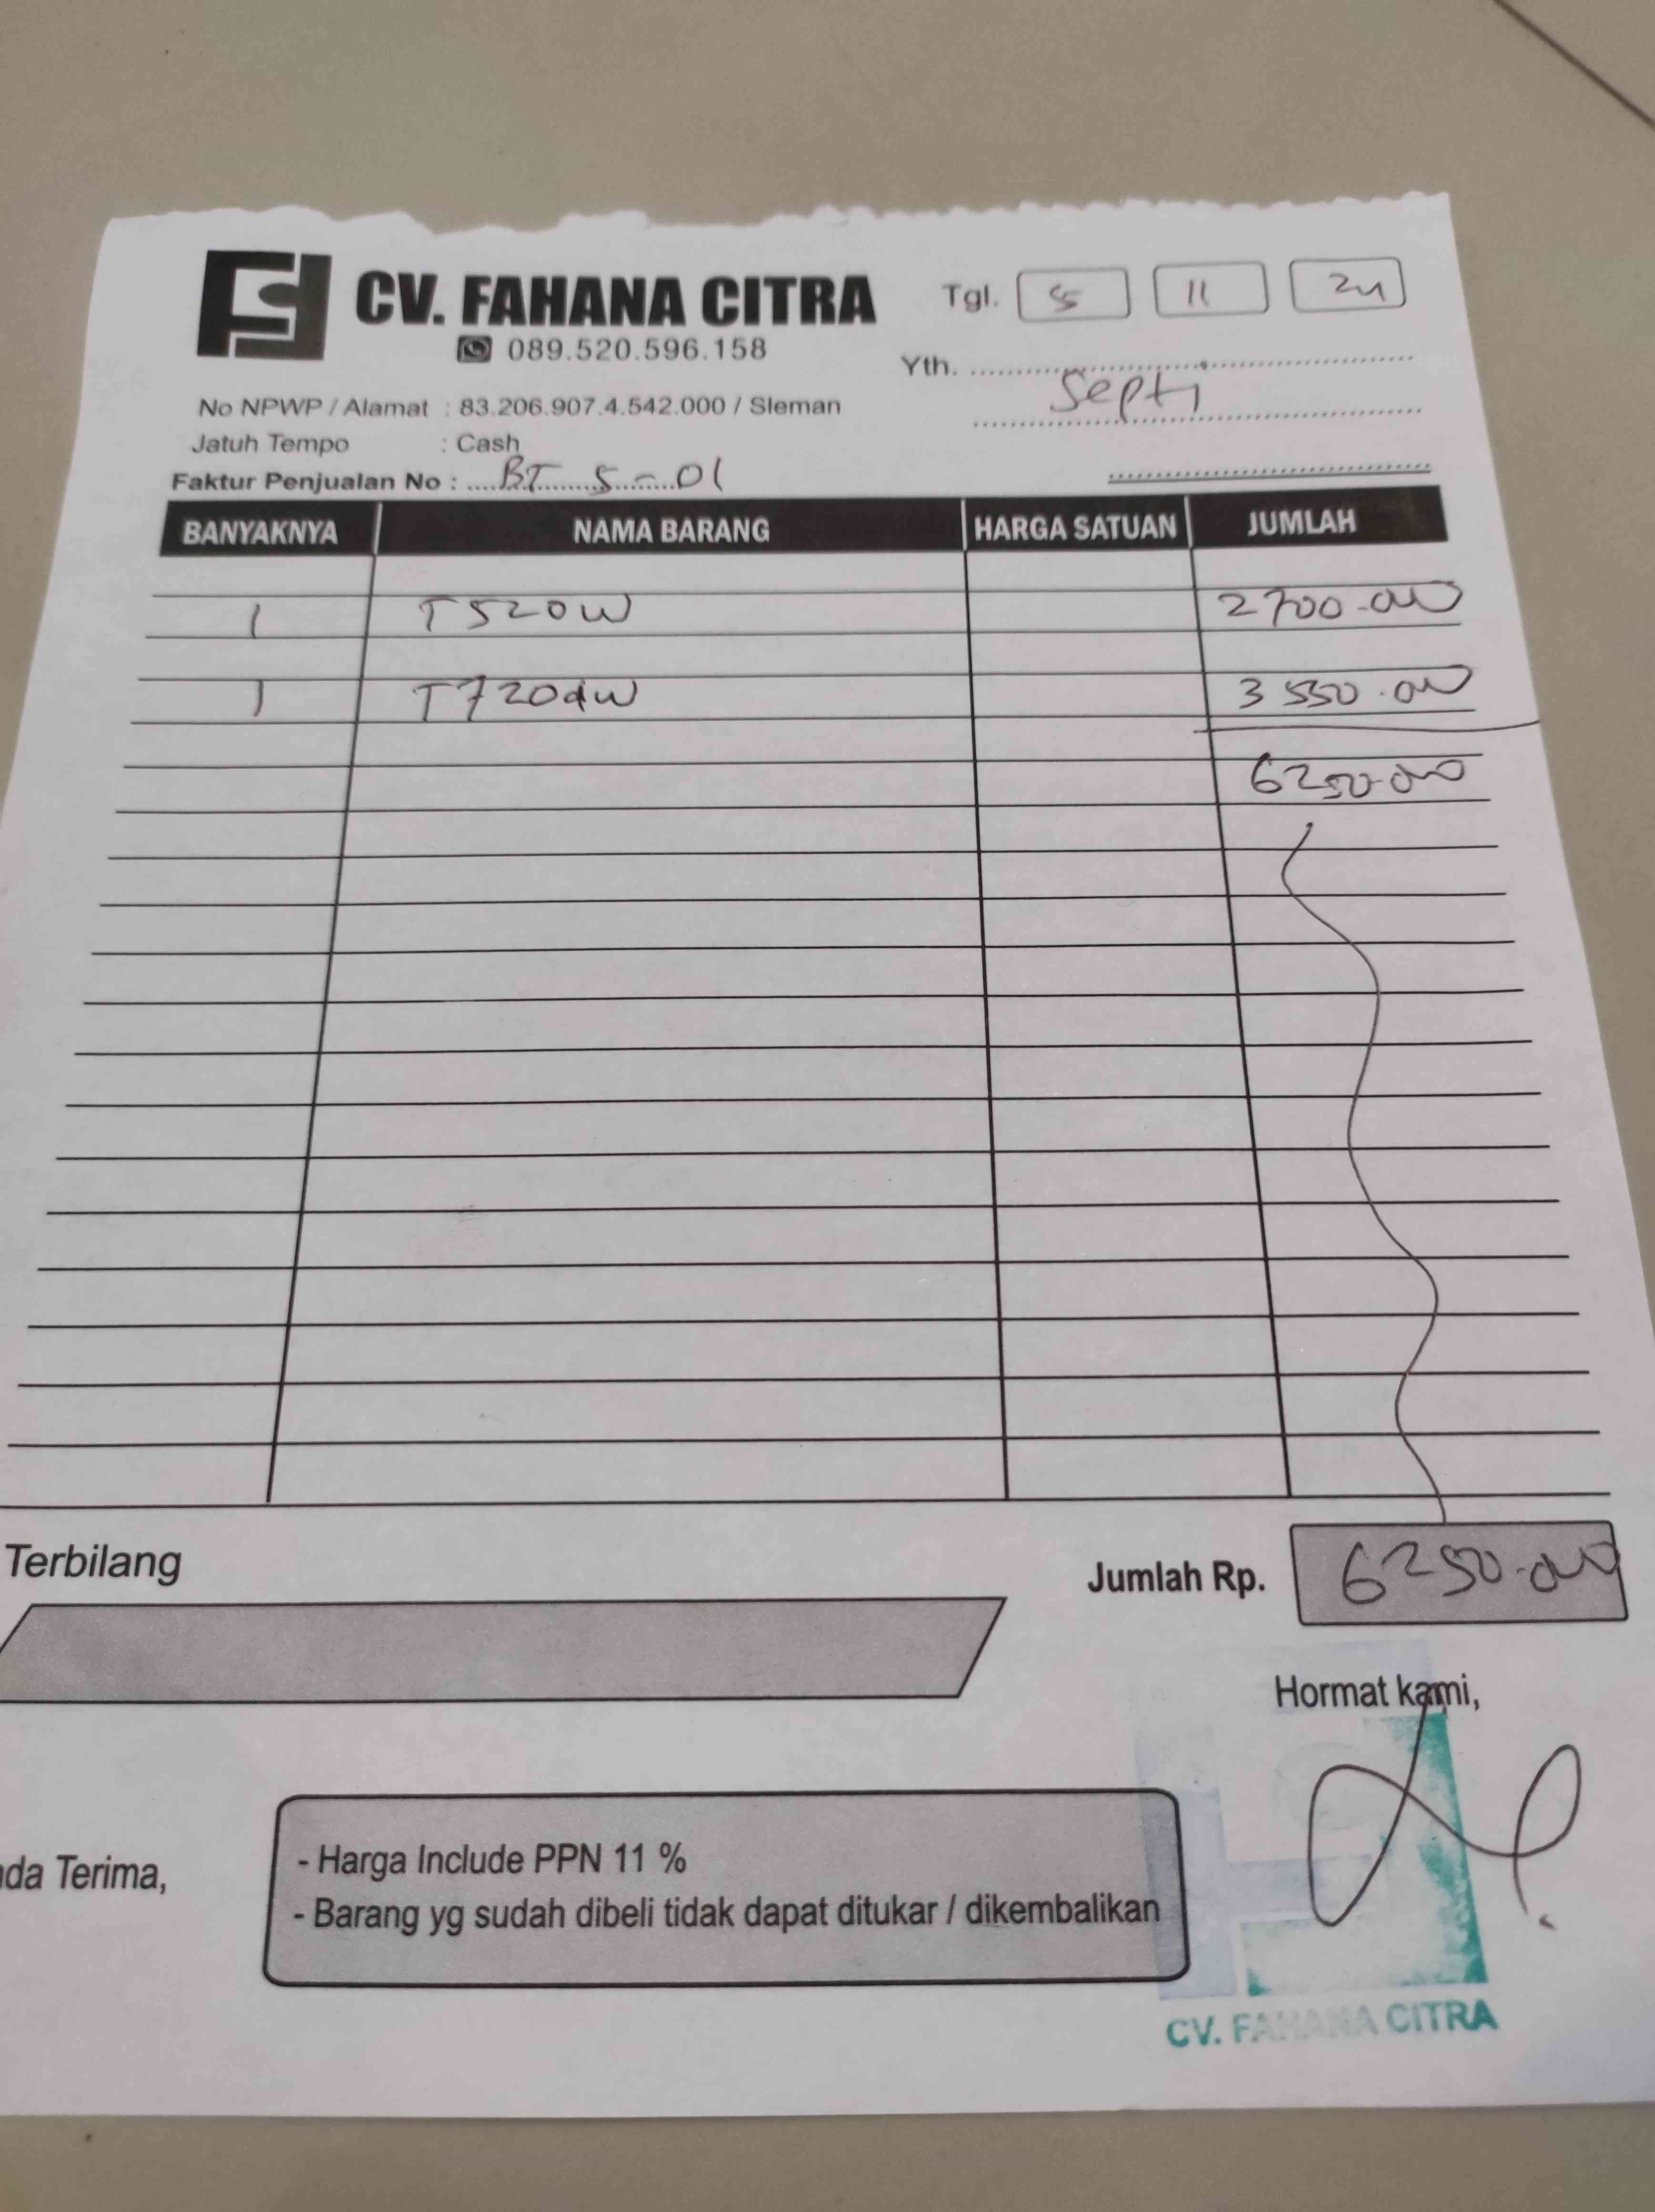 CV. FAHANA CITRA
089.520.596.158
Tgl. 5 11 24
Yth.
Septi
No NPWP / Alamat : 83.206.907.4.542.000 / Sleman
Jatuh Tempo : Cash
Faktur Penjualan No : BT 5-01
BANYAKNYA NAMA BARANG HARGA SATUAN JUMLAH
1 T520W 2700.000
1 T720dW 3550.000
6250.000
Terbilang
Jumlah Rp. 6250.000
Hormat kami,
da Terima,
- Harga Include PPN 11 %
- Barang yg sudah dibeli tidak dapat ditukar / dikembalikan
CV. FAHANA CITRA